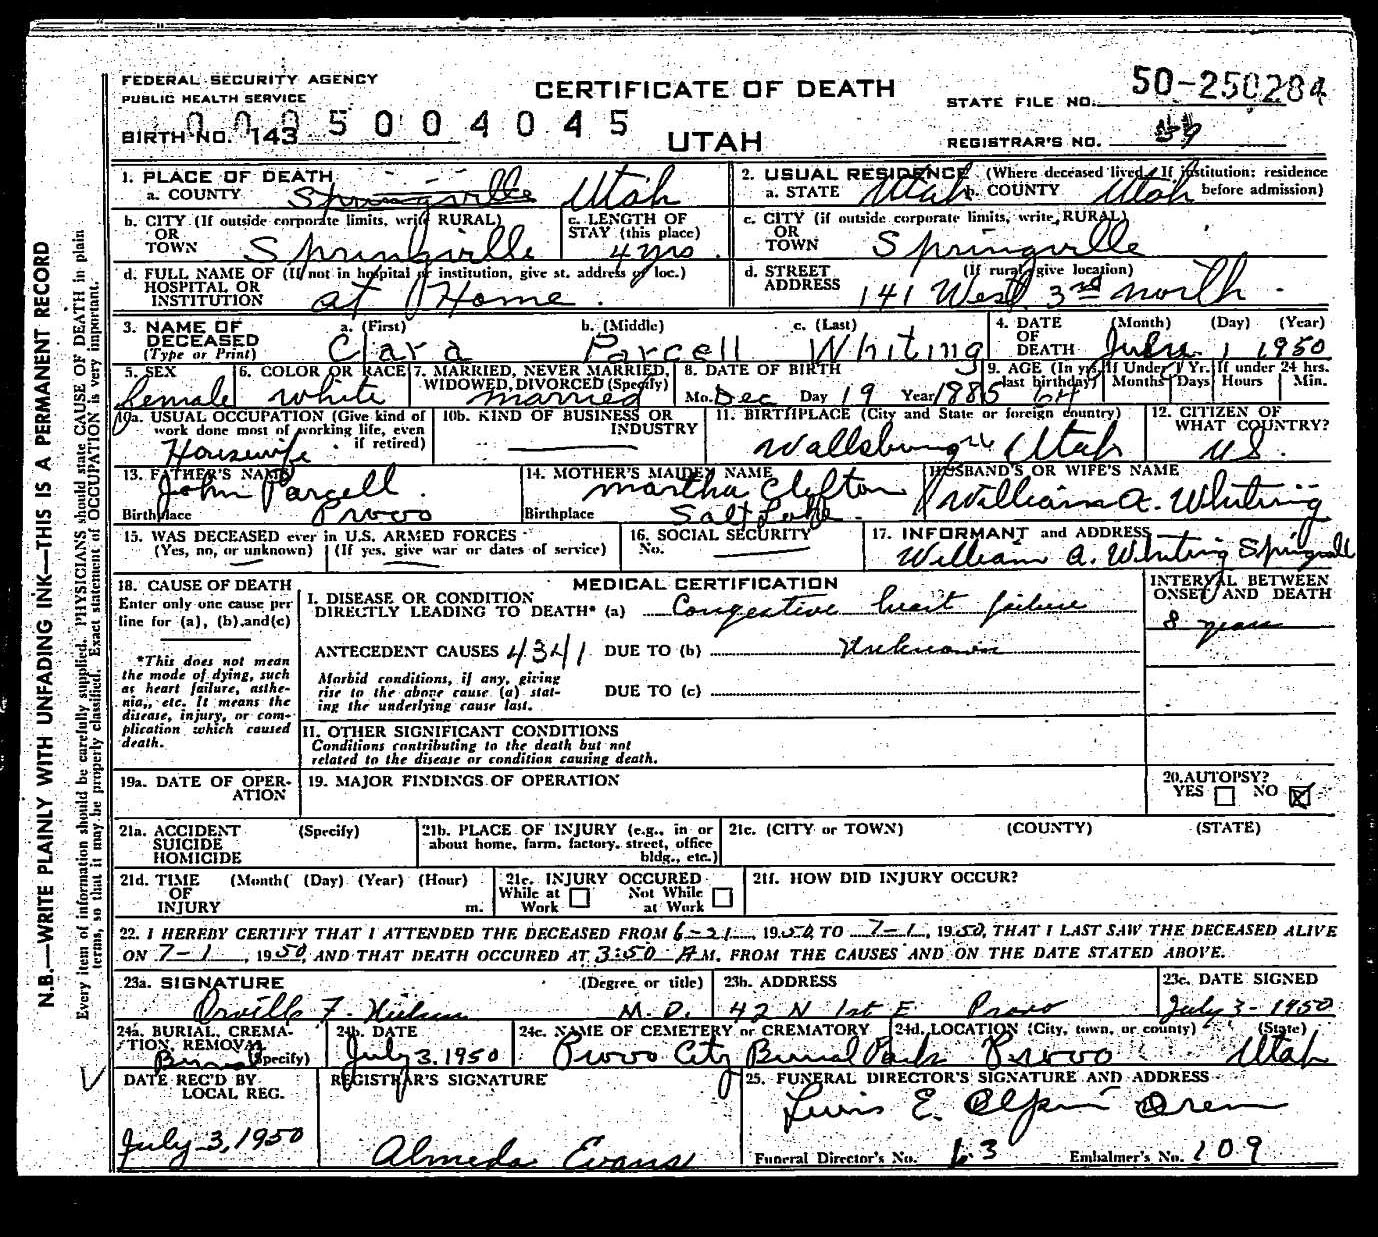 FEDERAL SECURITY AGENCY
PUBLIC HEALTH SERVICE
CERTIFICATE OF DEATH
UTAH
STATE FILE NO. 50-250284
BIRTH NO. 143
0005004045
REGISTRAR'S NO.
1. PLACE OF DEATH
a. COUNTY Springville Utah
2. USUAL RESIDENCE (Where deceased lived. If institution: residence before admission)
a. STATE Utah b. COUNTY Utah
b. CITY (If outside corporate limits, write RURAL) OR TOWN Springville
c. LENGTH OF STAY (this place) 4 yrs
c. CITY (if outside corporate limits, write RURAL) OR TOWN Springville
d. FULL NAME OF (If not in hospital or institution, give st. address or loc.) HOSPITAL OR INSTITUTION at Home.
d. STREET ADDRESS (If rural give location) 141 West 3rd north.
3. NAME OF DECEASED (Type or Print)
a. (First) Clara b. (Middle) Parcell c. (Last) Whiting
4. DATE OF DEATH (Month) (Day) (Year) July 1 1950
5. SEX female
6. COLOR OR RACE white
7. MARRIED, NEVER MARRIED, WIDOWED, DIVORCED (Specify) married
8. DATE OF BIRTH Mo. Dec Day 19 Year 1885
9. AGE (In yrs. last birthday) 64 If Under 1 Yr. Months Days If under 24 hrs. Hours Min.
10a. USUAL OCCUPATION (Give kind of work done most of working life, even if retired) Housewife
10b. KIND OF BUSINESS OR INDUSTRY
11. BIRTHPLACE (City and State or foreign country) Wallsburg Utah
12. CITIZEN OF WHAT COUNTRY? U.S.
13. FATHER'S NAME John Parcell.
Birthplace Provo
14. MOTHER'S MAIDEN NAME Martha Clefton
Birthplace Salt Lake.
HUSBAND'S OR WIFE'S NAME William A. Whiting
15. WAS DECEASED ever in U.S. ARMED FORCES
(Yes, no, or unknown) (If yes, give war or dates of service)
16. SOCIAL SECURITY No.
17. INFORMANT and ADDRESS William A. Whiting Springville
18. CAUSE OF DEATH
Enter only one cause per line for (a), (b), and (c)
*This does not mean the mode of dying, such as heart failure, asthenia, etc. It means the disease, injury, or complication which caused death.
MEDICAL CERTIFICATION
INTERVAL BETWEEN ONSET AND DEATH
I. DISEASE OR CONDITION DIRECTLY LEADING TO DEATH* (a) Congestive heart failure
8 years
ANTECEDENT CAUSES 4341 DUE TO (b) Unknown
Morbid conditions, if any, giving rise to the above cause (a) stating the underlying cause last.
DUE TO (c)
II. OTHER SIGNIFICANT CONDITIONS
Conditions contributing to the death but not related to the disease or condition causing death.
19a. DATE OF OPERATION
19. MAJOR FINDINGS OF OPERATION
20. AUTOPSY? YES NO
21a. ACCIDENT SUICIDE HOMICIDE (Specify)
21b. PLACE OF INJURY (e.g., in or about home, farm, factory, street, office bldg., etc.)
21c. (CITY or TOWN) (COUNTY) (STATE)
21d. TIME OF INJURY (Month( (Day) (Year) (Hour) m.
21e. INJURY OCCURED While at Work Not While at Work
21f. HOW DID INJURY OCCUR?
22. I HEREBY CERTIFY THAT I ATTENDED THE DECEASED FROM 6-21, 1950, TO 7-1, 1950, THAT I LAST SAW THE DECEASED ALIVE
ON 7-1, 1950, AND THAT DEATH OCCURED AT 3:50 A M. FROM THE CAUSES AND ON THE DATE STATED ABOVE.
23a. SIGNATURE (Degree or title) Orville F. Nielsen M.D.
23b. ADDRESS 42 N 1st E Provo
23c. DATE SIGNED July 3-1950
24a. BURIAL, CREMATION, REMOVAL (Specify) Burial
24b. DATE July 3, 1950
24c. NAME OF CEMETERY or CREMATORY Provo City Burial Park
24d. LOCATION (City, town, or county) (State) Provo Utah
DATE REC'D BY LOCAL REG. July 3, 1950
REGISTRAR'S SIGNATURE Almeda Evans
25. FUNERAL DIRECTOR'S SIGNATURE AND ADDRESS
Lewis E. Olpin Orem
Funeral Director's No. 63 Embalmer's No. 109
N.B.—WRITE PLAINLY WITH UNFADING INK—THIS IS A PERMANENT RECORD
Every item of information should be carefully supplied. PHYSICIANS should state CAUSE OF DEATH in plain
terms, so that it may be properly classified. Exact statement of OCCUPATION is very important.